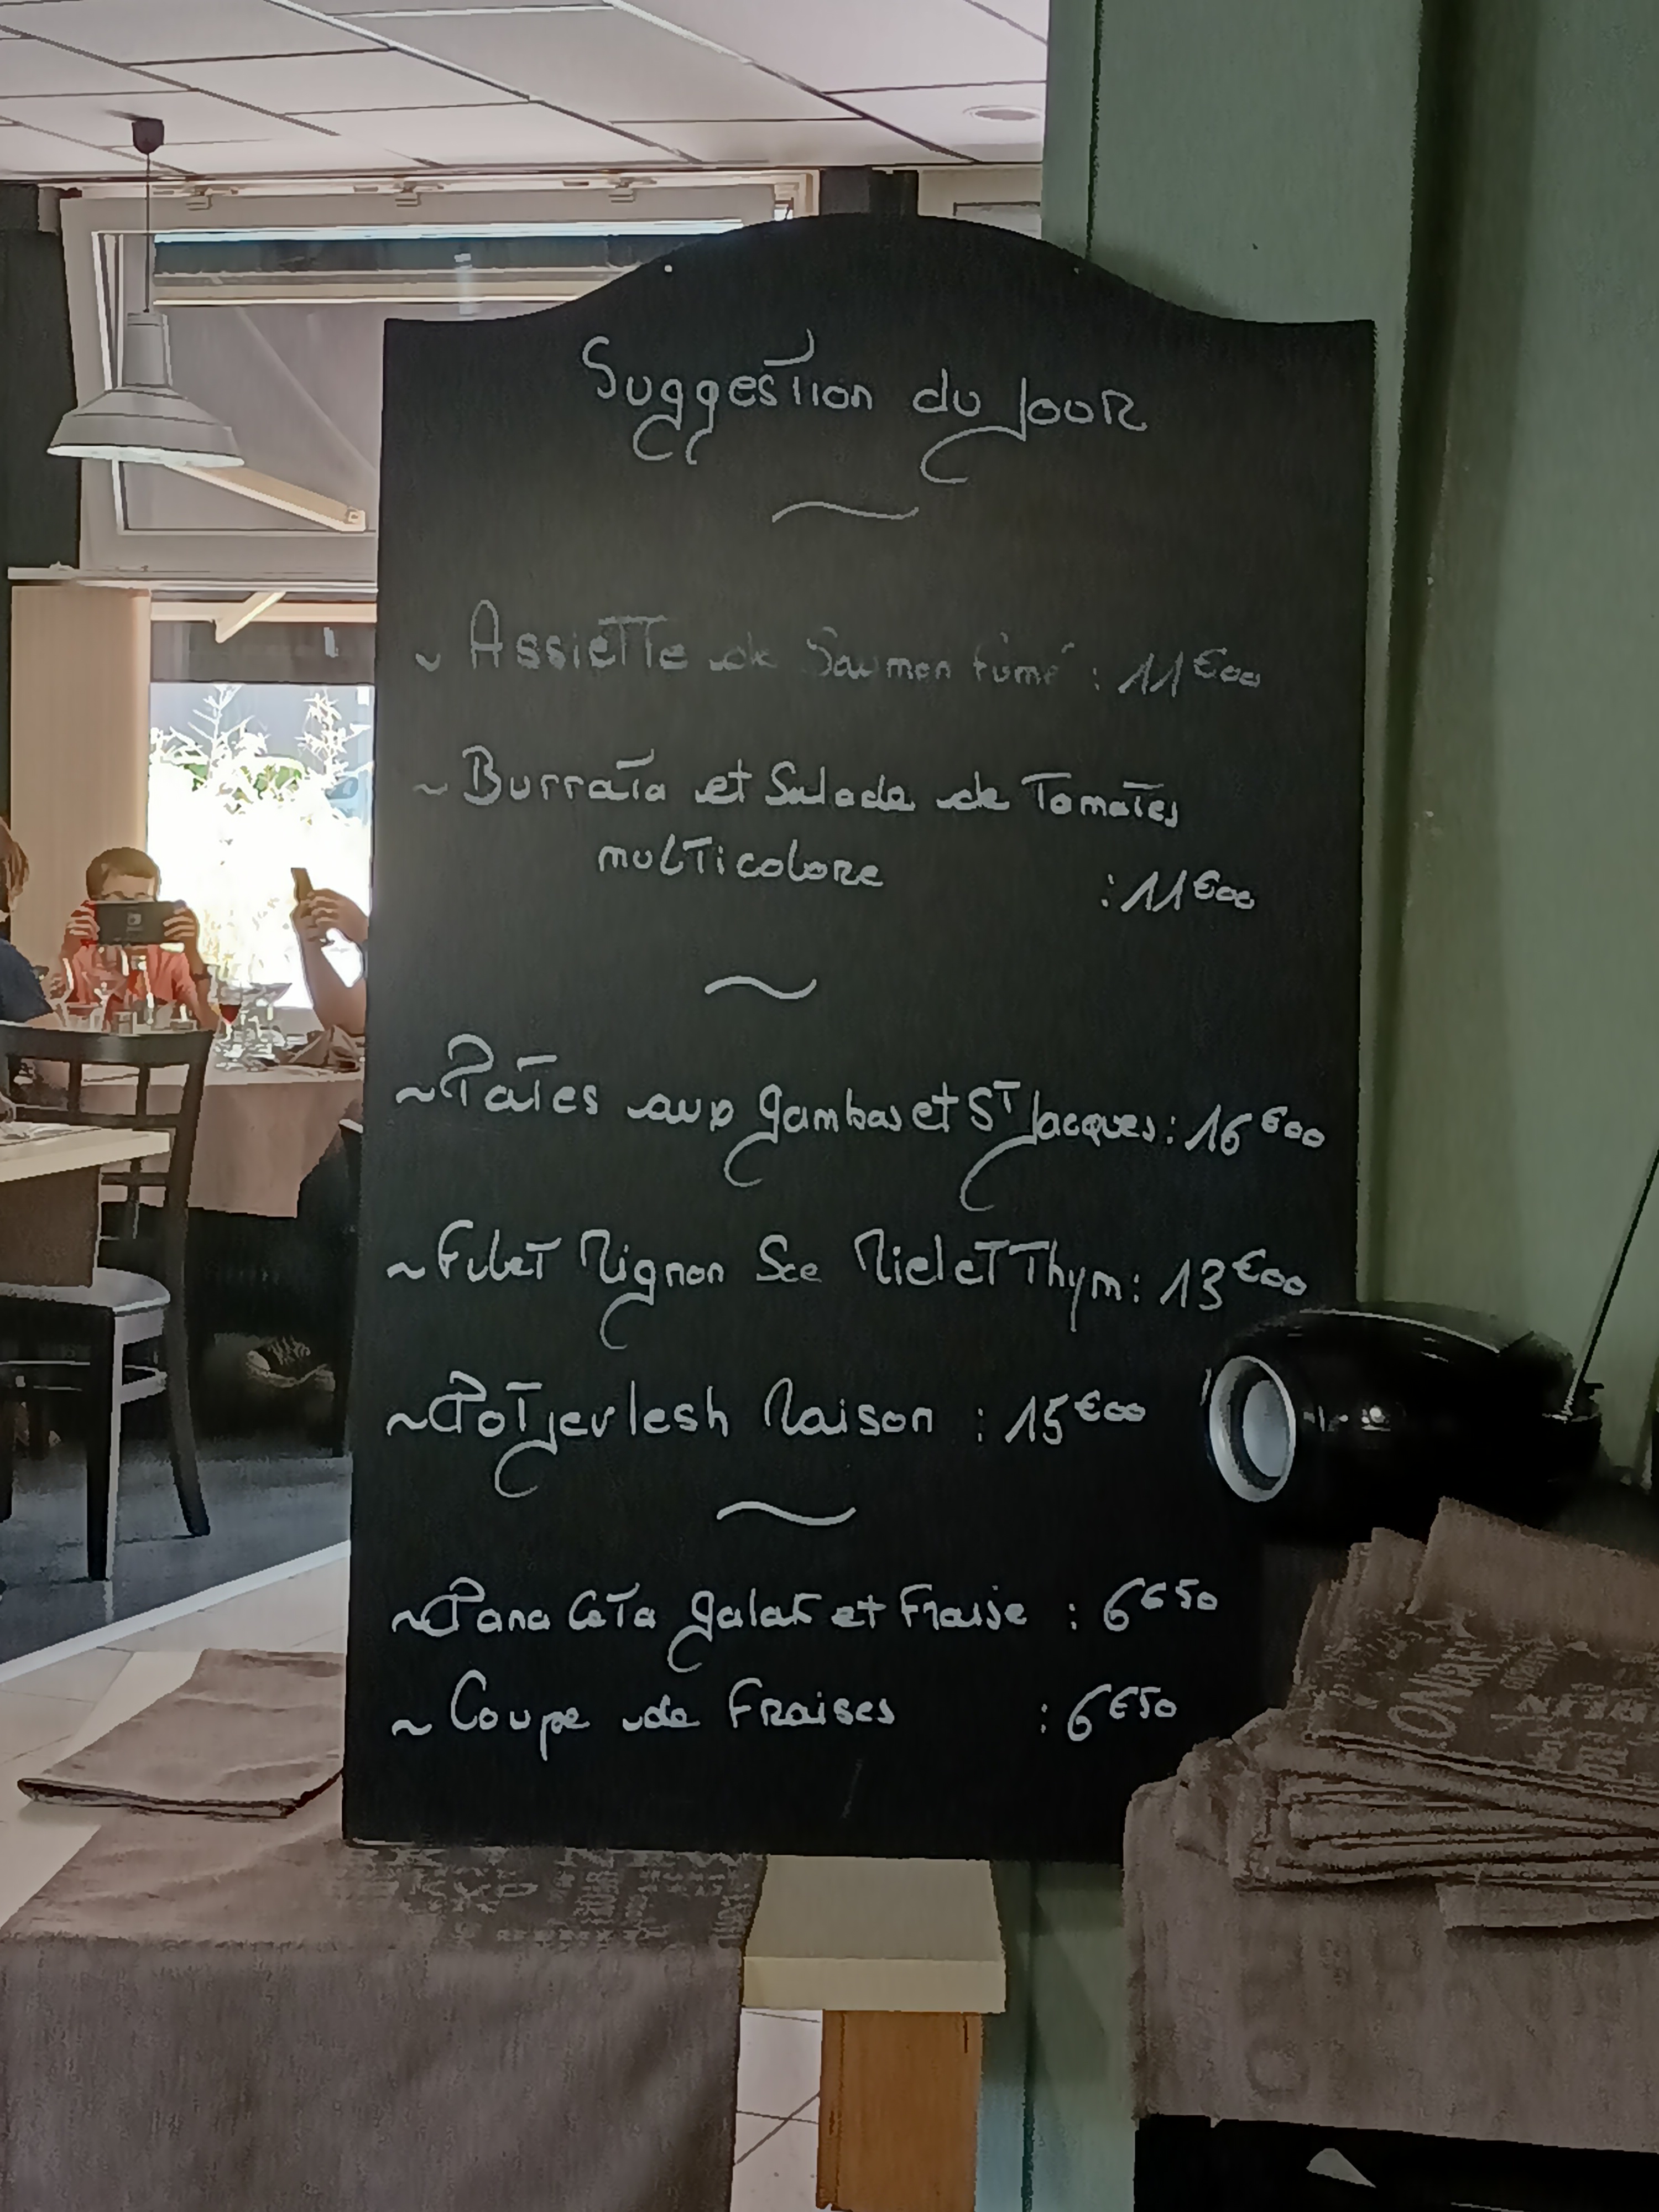 Suggestion du Jour
~
~ Assiette de Saumon fumé : 11€00
~ Burrata et Salade de Tomates
multicolore : 11€00
~
~ Pates aux gambas et St Jacques : 16€00
~ Filet Mignon Sce Miel et Thym : 13€00
~ Potjevlesh Maison : 15€00
~
~ Pana Cota galak et Fraise : 6€50
~ Coupe de Fraises : 6€50